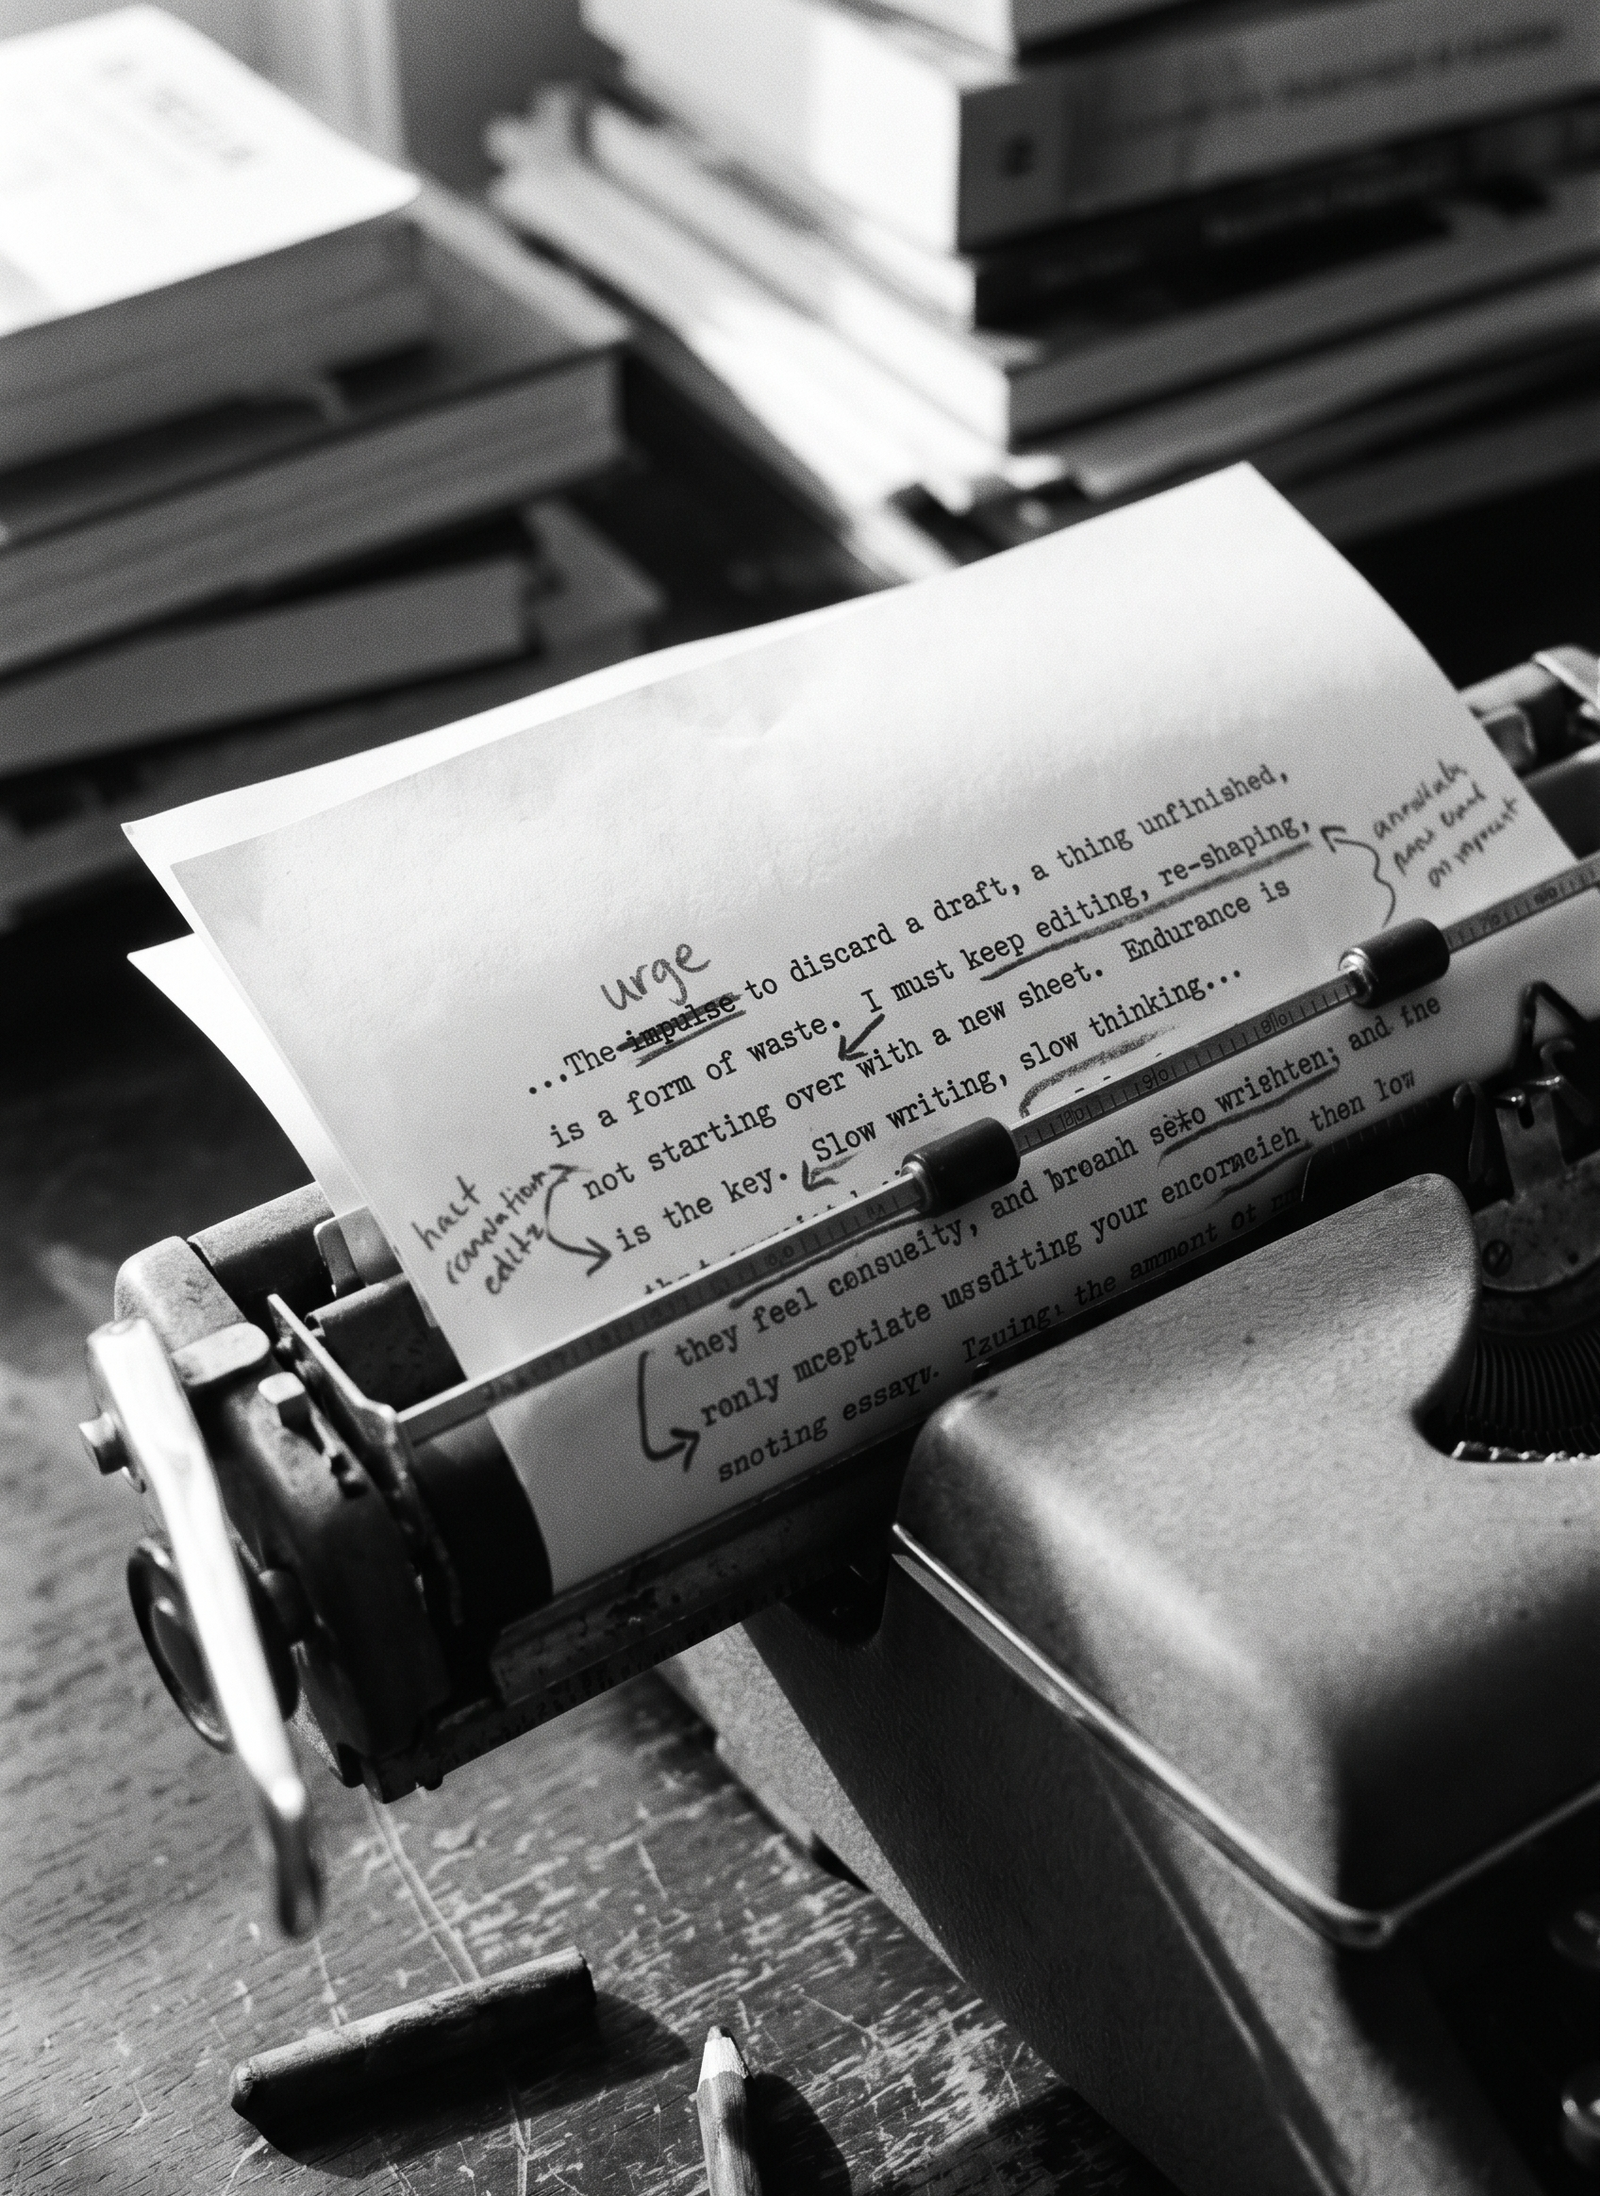 urge
...The impulse to discard a draft, a thing unfinished,
is a form of waste. I must keep editing, re-shaping,
not starting over with a new sheet. Endurance is
is the key. Slow writing, slow thinking...
they feel consueity, and broanh seto wrishten; and the
ronly mceptiate ussditing your encorncieh then low
snoting essayt. Tzuing, the ammont ot
halt